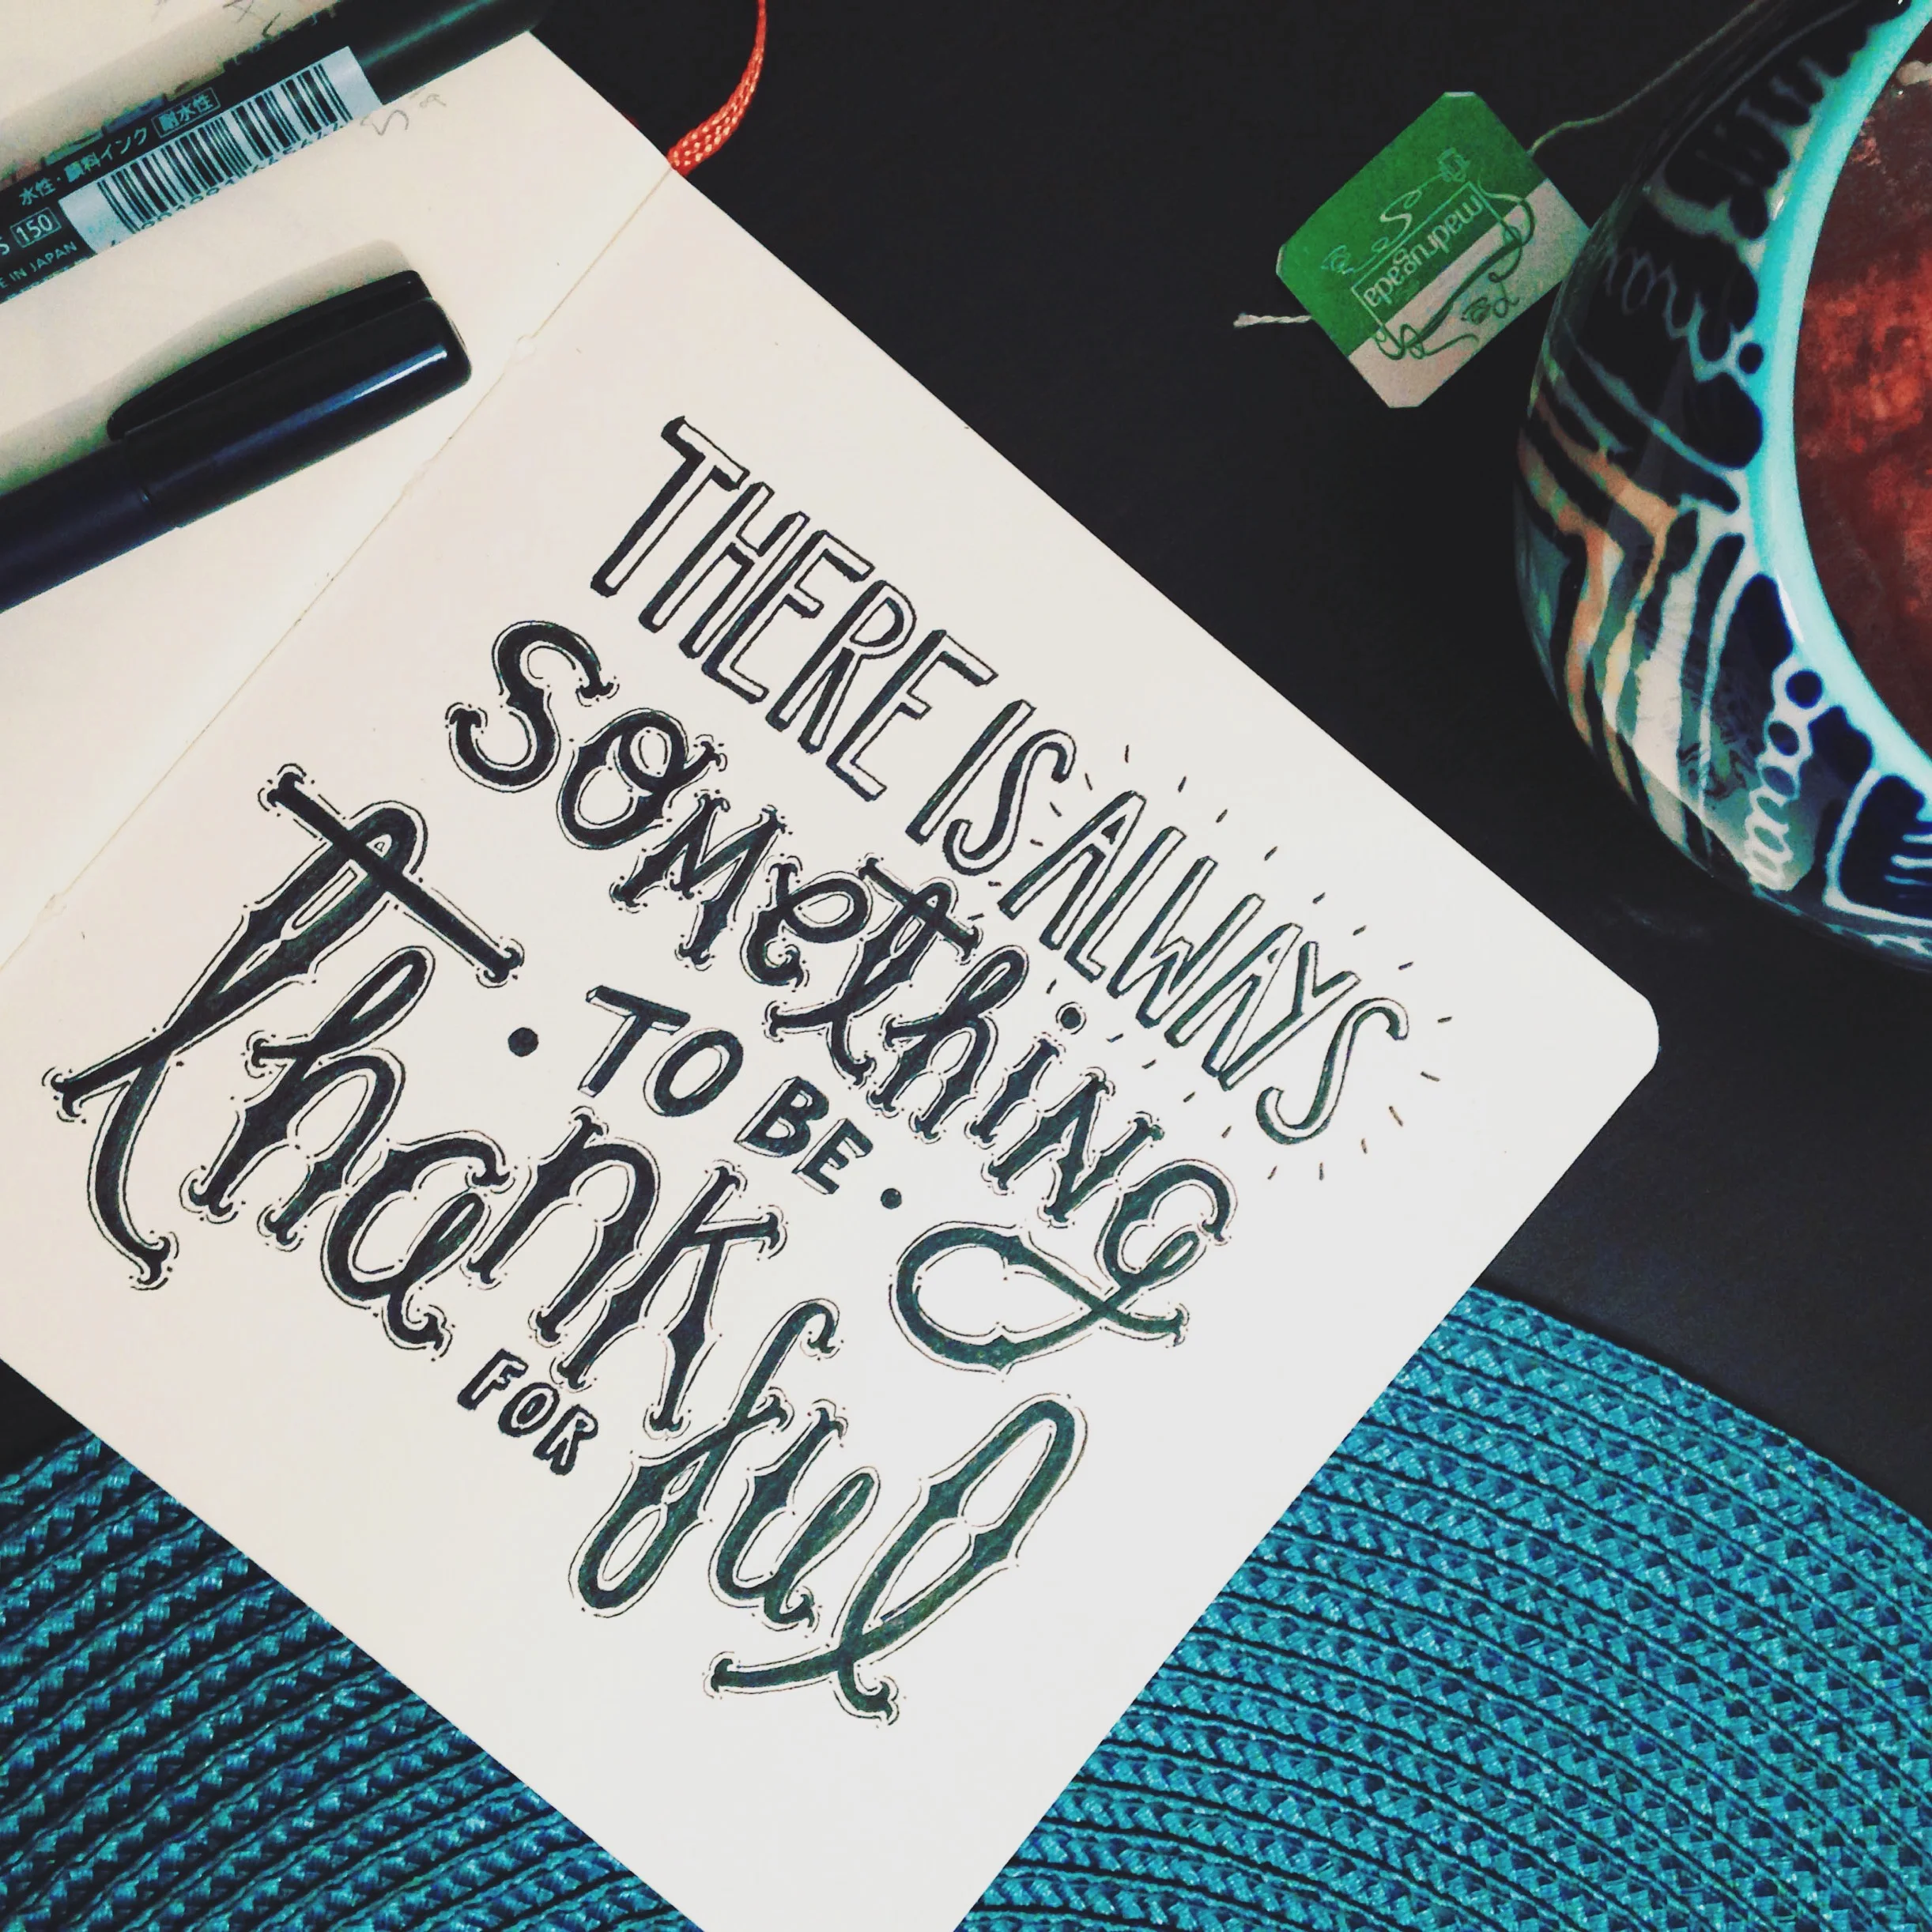 THERE IS ALWAYS
SOMETHING
• TO BE •
Thankful
FOR
水性・顔料インク 耐水性
150
E IN JAPAN
madrugada